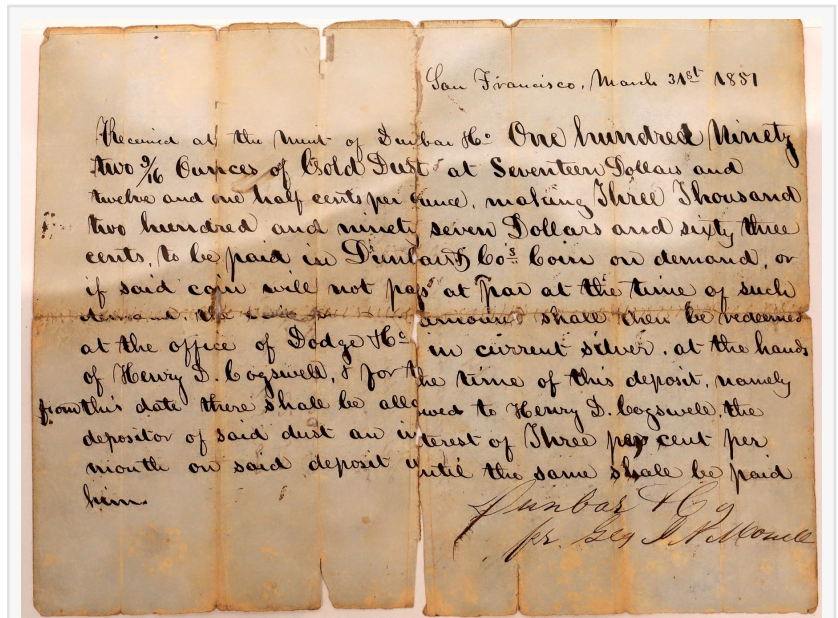 San Francisco, March 31st 1851
Received at the Mint of Dunbar & Co One hundred Ninety
two 9/16 Ounces of Gold Dust at Seventeen Dollars and
twelve and one half cents per ounce, making Three Thousand
two hundred and ninety seven Dollars and sixty three
cents, to be paid in Dunbar & Co's Coin on demand, or
if said coin will not pass at Par at the time of such
amount shall then be redeemed
at the office of Dodge & Co in current silver, at the hands
of Henry D. Cogswell, & for the time of this deposit, namely
from this date there shall be allowed to Henry D. Cogswell, the
depositor of said dust an interest of Three per cent per
month on said deposit until the same shall be paid
him.
Dunbar & Co
pr. Geo